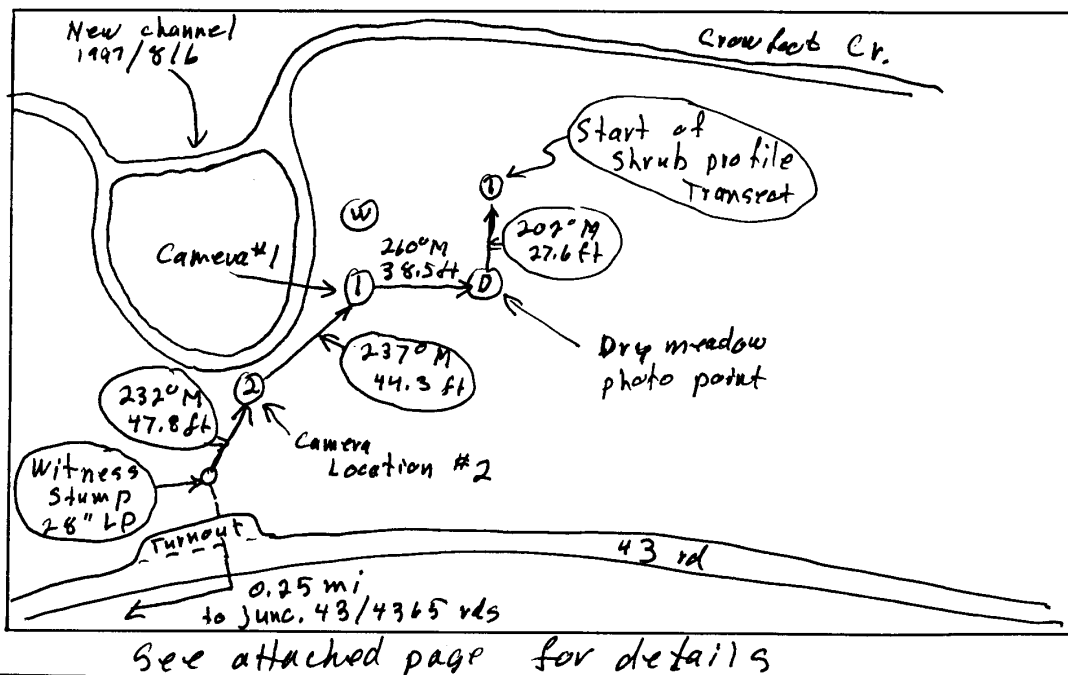 New channel
1997/8/6
Crowfoot Cr.
Start of
Shrub profile
Transect
T
W
202° M
27.6 ft
Camera #1
260° M
38.5 ft
1
D
237° M
44.3 ft
Dry meadow
photo point
232° M
47.8 ft
2
Camera
Location #2
Witness
Stump
28" LP
Turnout
43 rd
0.25 mi
to Junc. 43/4365 rds
See attached page for details